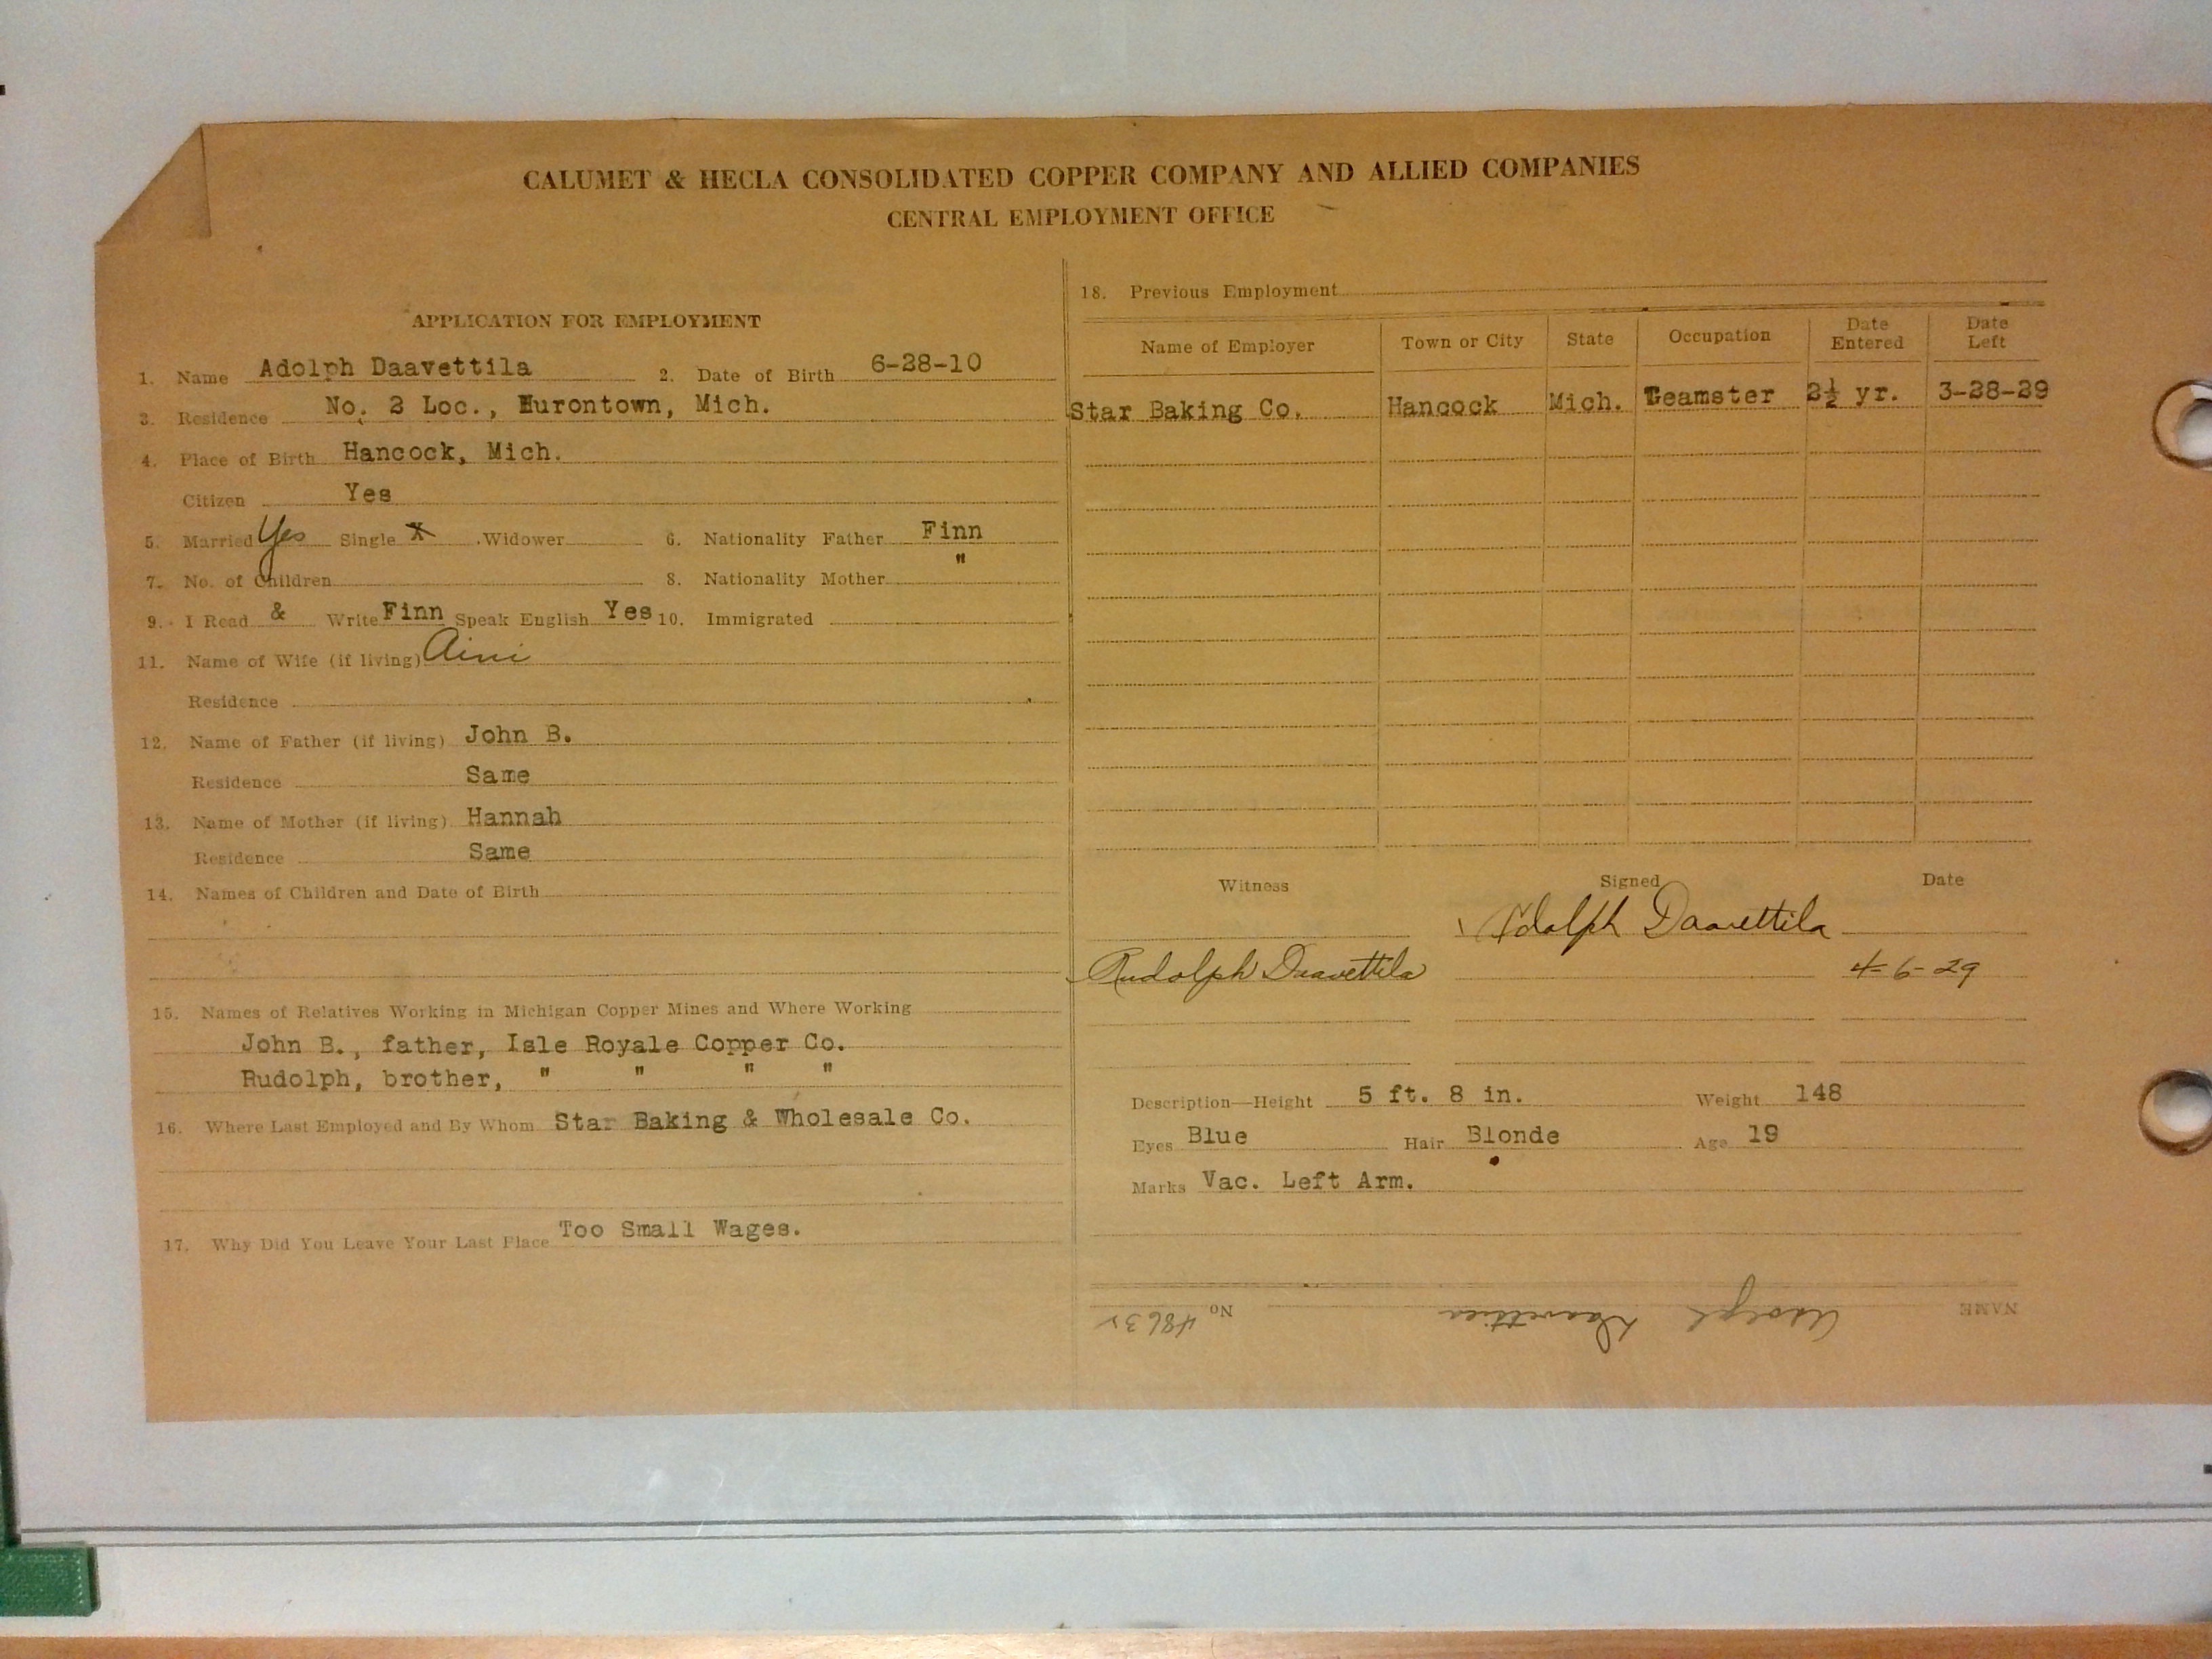 CALUMET & HECLA CONSOLIDATED COPPER COMPANY AND ALLIED COMPANIES
CENTRAL EMPLOYMENT OFFICE
APPLICATION FOR EMPLOYMENT
1. Name Adolph Daavettila 2. Date of Birth 6-28-10
3. Residence No. 2 Loc., Hurontown, Mich.
4. Place of Birth Hancock, Mich.
Citizen Yes
5. Married Yes Single X Widower 6. Nationality Father Finn
7. No. of Children 8. Nationality Mother "
9. I Read & Write Finn Speak English Yes 10. Immigrated
11. Name of Wife (if living) Aini
Residence
12. Name of Father (if living) John B.
Residence Same
13. Name of Mother (if living) Hannah
Residence Same
14. Names of Children and Date of Birth
15. Names of Relatives Working in Michigan Copper Mines and Where Working
John B., father, Isle Royale Copper Co.
Rudolph, brother, " " " "
16. Where Last Employed and By Whom Star Baking & Wholesale Co.
17. Why Did You Leave Your Last Place Too Small Wages.
18. Previous Employment
Name of Employer Town or City State Occupation Date Entered Date Left
Star Baking Co. Hancock Mich. Teamster 2½ yr. 3-28-29
Witness Signed Date
Adolph Daavettila
Rudolph Daavettila 4-6-29
Description—Height 5 ft. 8 in. Weight 148
Eyes Blue Hair Blonde Age 19
Marks Vac. Left Arm.
NAME Adolph Daavettila No.